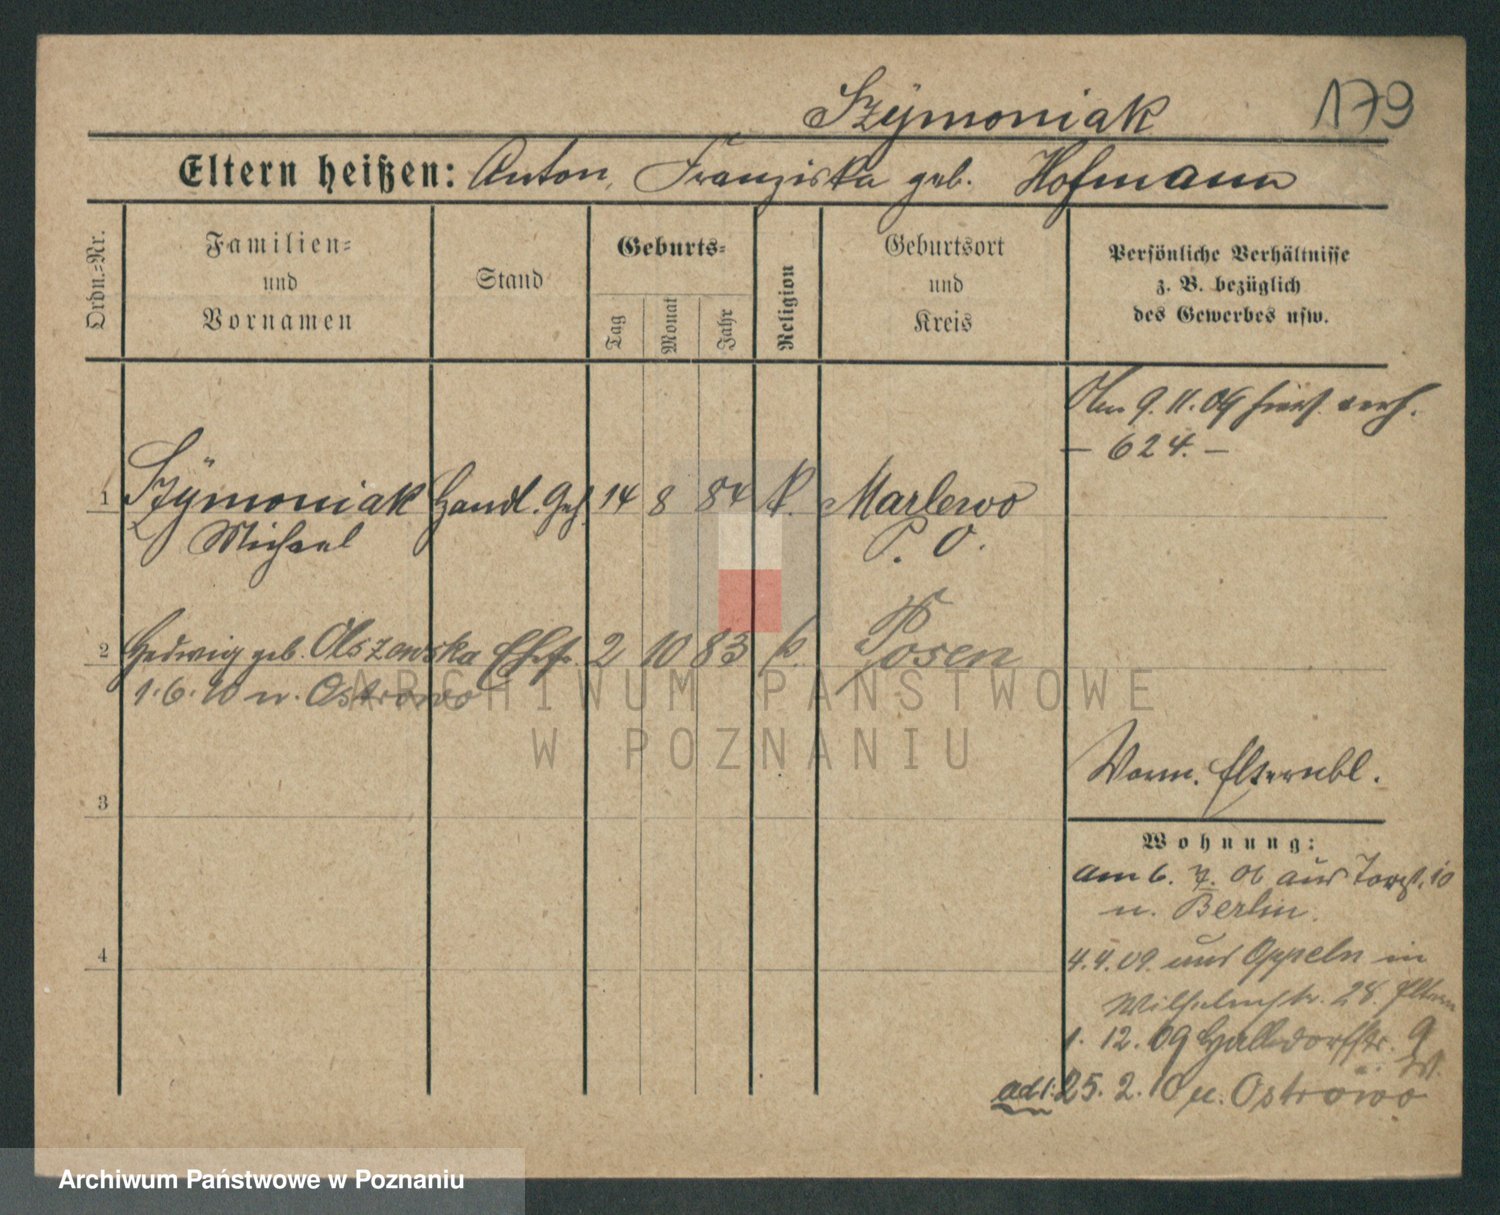 Szÿmoniak
179
Eltern heißen: Anton, Franziska geb. Hofmann
Ordn.=Nr.
Familien=
und
Vornamen
Stand
Geburts=
Tag
Monat
Jahr
Religion
Geburtsort
und
Kreis
Persönliche Verhältnisse
z. B. bezüglich
des Gewerbes usw.
9. 11. 09 verh.
– 624. –
1 Szÿmoniak Handl. Geh. 14 8 84 k. Marlewo
Michael P. O.
2 Hedwig geb. Olszewska Ehefr. 2 10 83 k. Posen
1. 6. 10 n. Ostrowo
3
Vorm. Elternbl.
Wohnung:
am 6. 7. 06 aus 10
n. Berlin.
4
4. 4. 09. aus Oppeln in
Wilhelmstr. 28. Eltern
1. 12. 09 Halldorfstr. 9
adl: 25. 2. 10 n. Ostrowo
ARCHIWUM PAŃSTWOWE
W POZNANIU
Archiwum Państwowe w Poznaniu